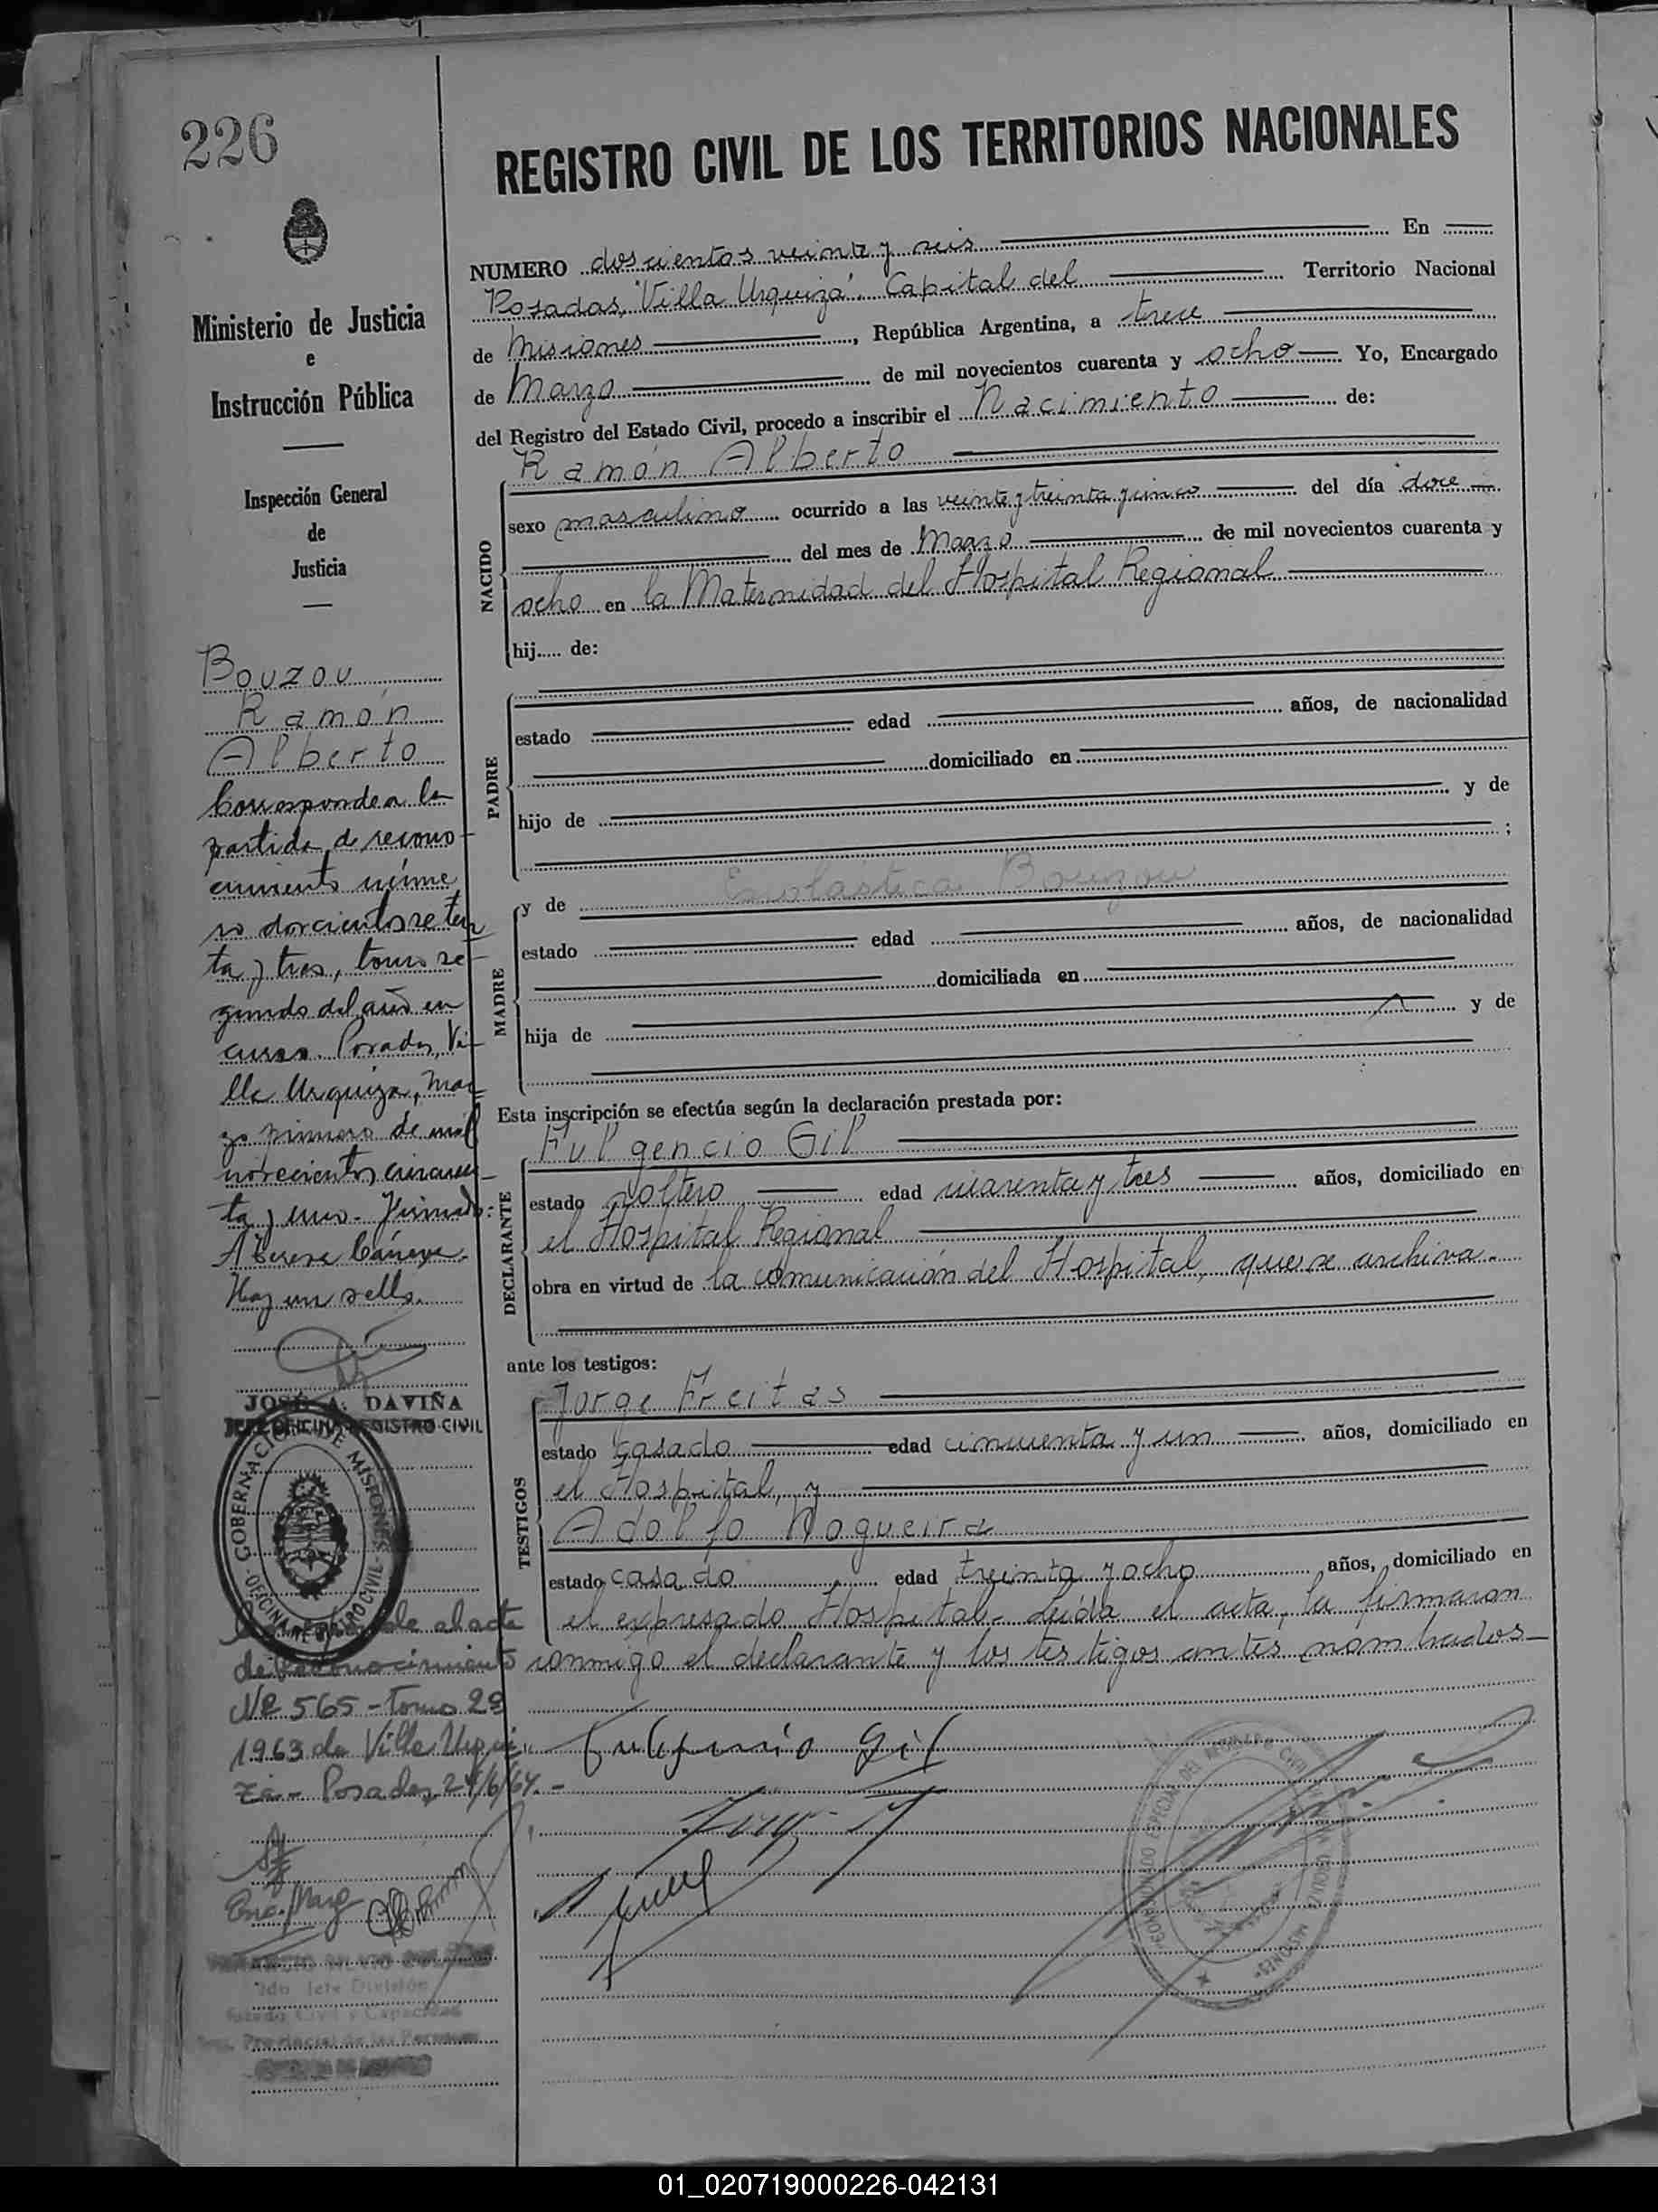 226
REGISTRO CIVIL DE LOS TERRITORIOS NACIONALES
NUMERO doscientos veinte y seis En
Posadas, "Villa Urquiza". Capital del Territorio Nacional
de Misiones, República Argentina, a trece
de Marzo de mil novecientos cuarenta y ocho Yo, Encargado
del Registro del Estado Civil, procedo a inscribir el Nacimiento de:
NACIDO
Ramón Alberto
sexo masculino ocurrido a las veinte y treinta y cinco del día doce
del mes de Marzo de mil novecientos cuarenta y
ocho en la Maternidad del Hospital Regional
hij..... de:
PADRE
estado edad años, de nacionalidad
domiciliado en
hijo de y de
;
MADRE
y de Escolastica Bouzou
estado edad años, de nacionalidad
domiciliada en
hija de y de
Esta inscripción se efectúa según la declaración prestada por:
DECLARANTE
Fulgencio Gil
estado soltero edad cuarenta y tres años, domiciliado en
el Hospital Regional
obra en virtud de la comunicación del Hospital, que se archiva.
ante los testigos:
TESTIGOS
Jorge Freitas
estado casado edad cincuenta y un años, domiciliado en
el Hospital, y
Adolfo Nogueira
estado casado edad treinta y ocho años, domiciliado en
el expresado Hospital. Leída el acta, la firmaron
conmigo el declarante y los testigos antes nombrados
Fulgencio Gil
Ministerio de Justicia
e
Instrucción Pública
Inspección General
de
Justicia
Bouzou
Ramón
Alberto
Corresponde a la
partida de recono-
cimiento núme
ro doscientos seten
ta y tres, tomo se-
gundo del año en
curso. Posadas, Vi-
lla Urquiza, mar-
zo primero de mil
novecientos cincuen-
ta y uno. Firmado:
Hay un sello.
JOSÉ A. DAVIÑA
JEFE OFICINA REGISTRO CIVIL
GOBERNACION DE MISIONES
OFICINA REGISTRO CIVIL
al acta
de Reconocimiento
Nº 565 - tomo 2º
1963 de Villa Urqui
za - Posadas, 24/6/64.-
2do. Jefe División
Estado Civil y Capacidad
Provincial de las Personas
MISIONES
01_020719000226-042131